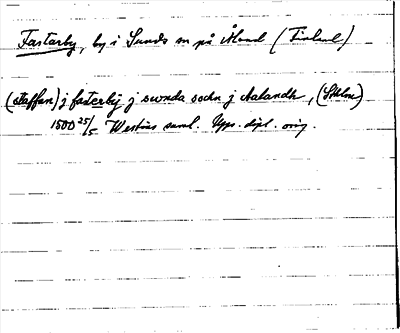 Fastarby, by i Sunds sn på Åland (Finland)
(staffan) j fasterby j swnda sochn j Aalandh, (Sthlm)
1500 25/5 Westins saml. Upps. dipl. orig.